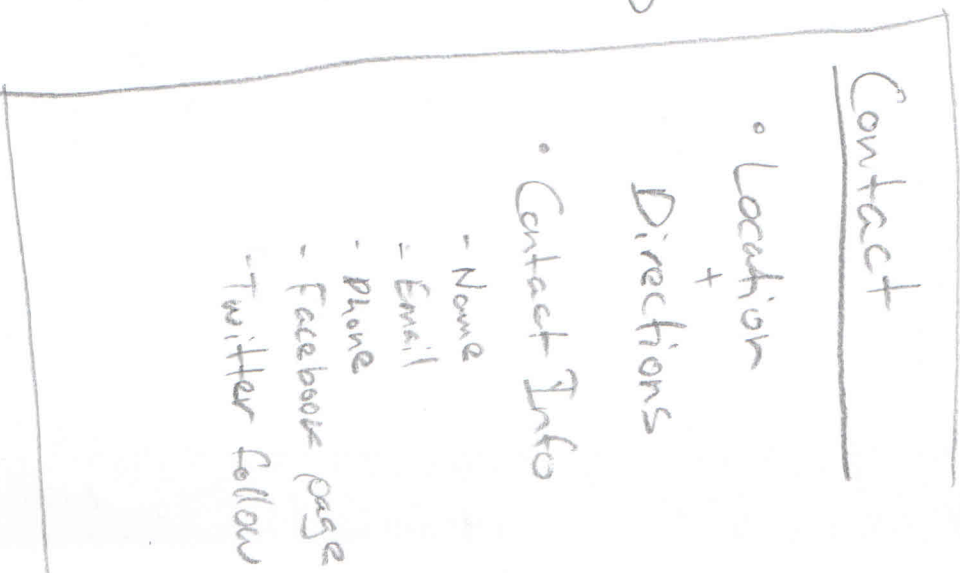 Contact
• Location
+
Directions
• Contact Info
- Name
- Email
- Phone
- Facebook page
- Twitter follow